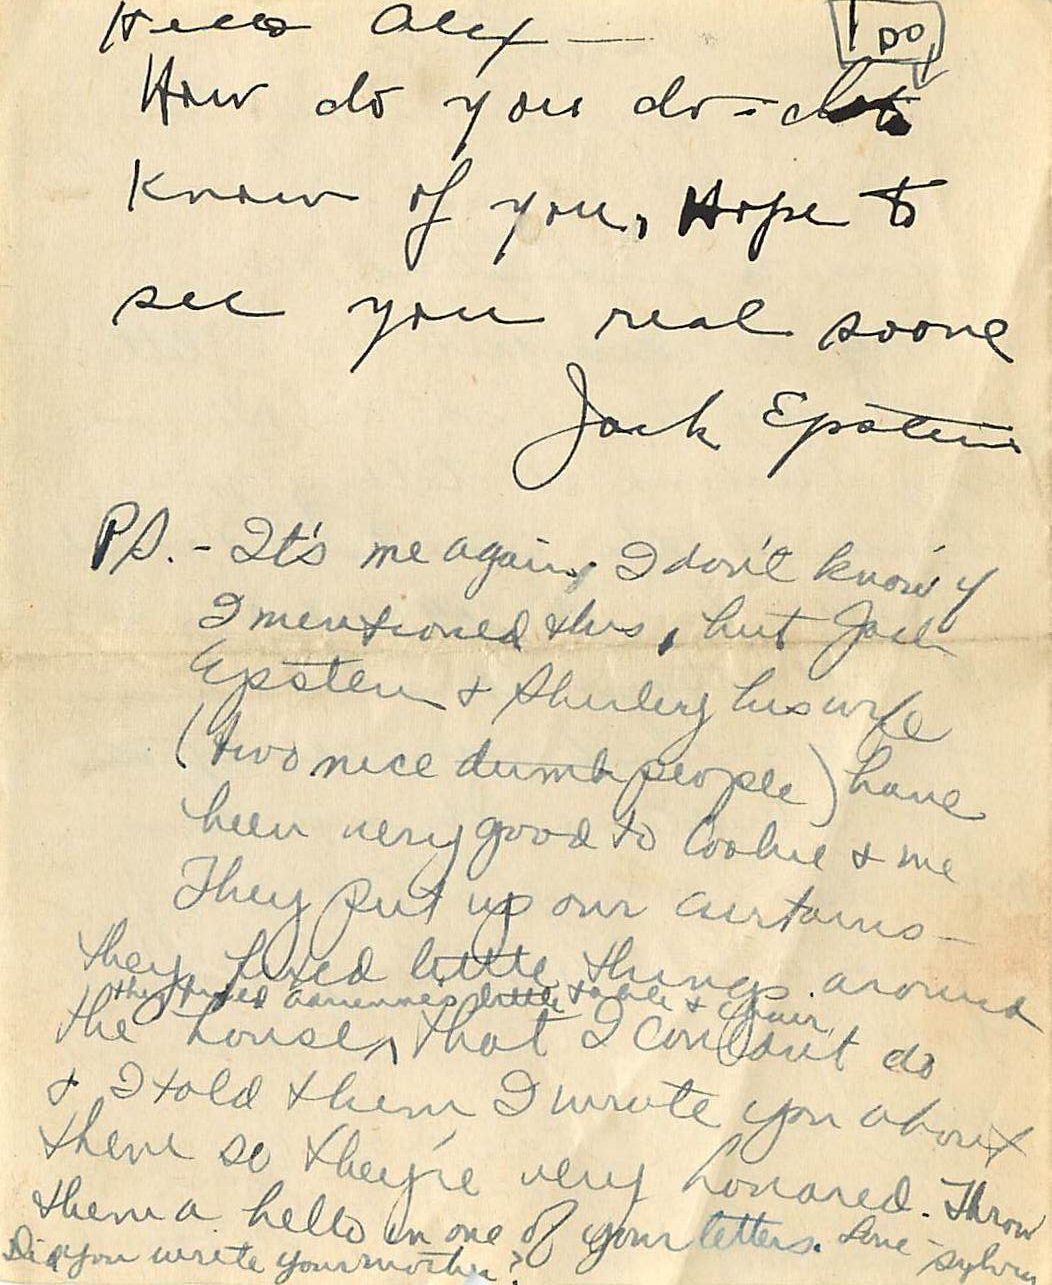 Hello Alex —
I DO
How do you do -
Know of you, Hope to
see you real soone
Jack Epstein
PS. - It's me again, I don't know if
I mentioned this, but Jack
Epstein & Shirley his wife
(two nice dumb people) have
been very good to Cookie & me
They put up our curtains —
they fixed little things around
they fixed Adrienne's little table & chair
the house, that I couldn't do
& I told them I wrote you about
them so they're very honored. Throw
them a hello in one of your letters. Love - Sylvia
Did you write your mother?